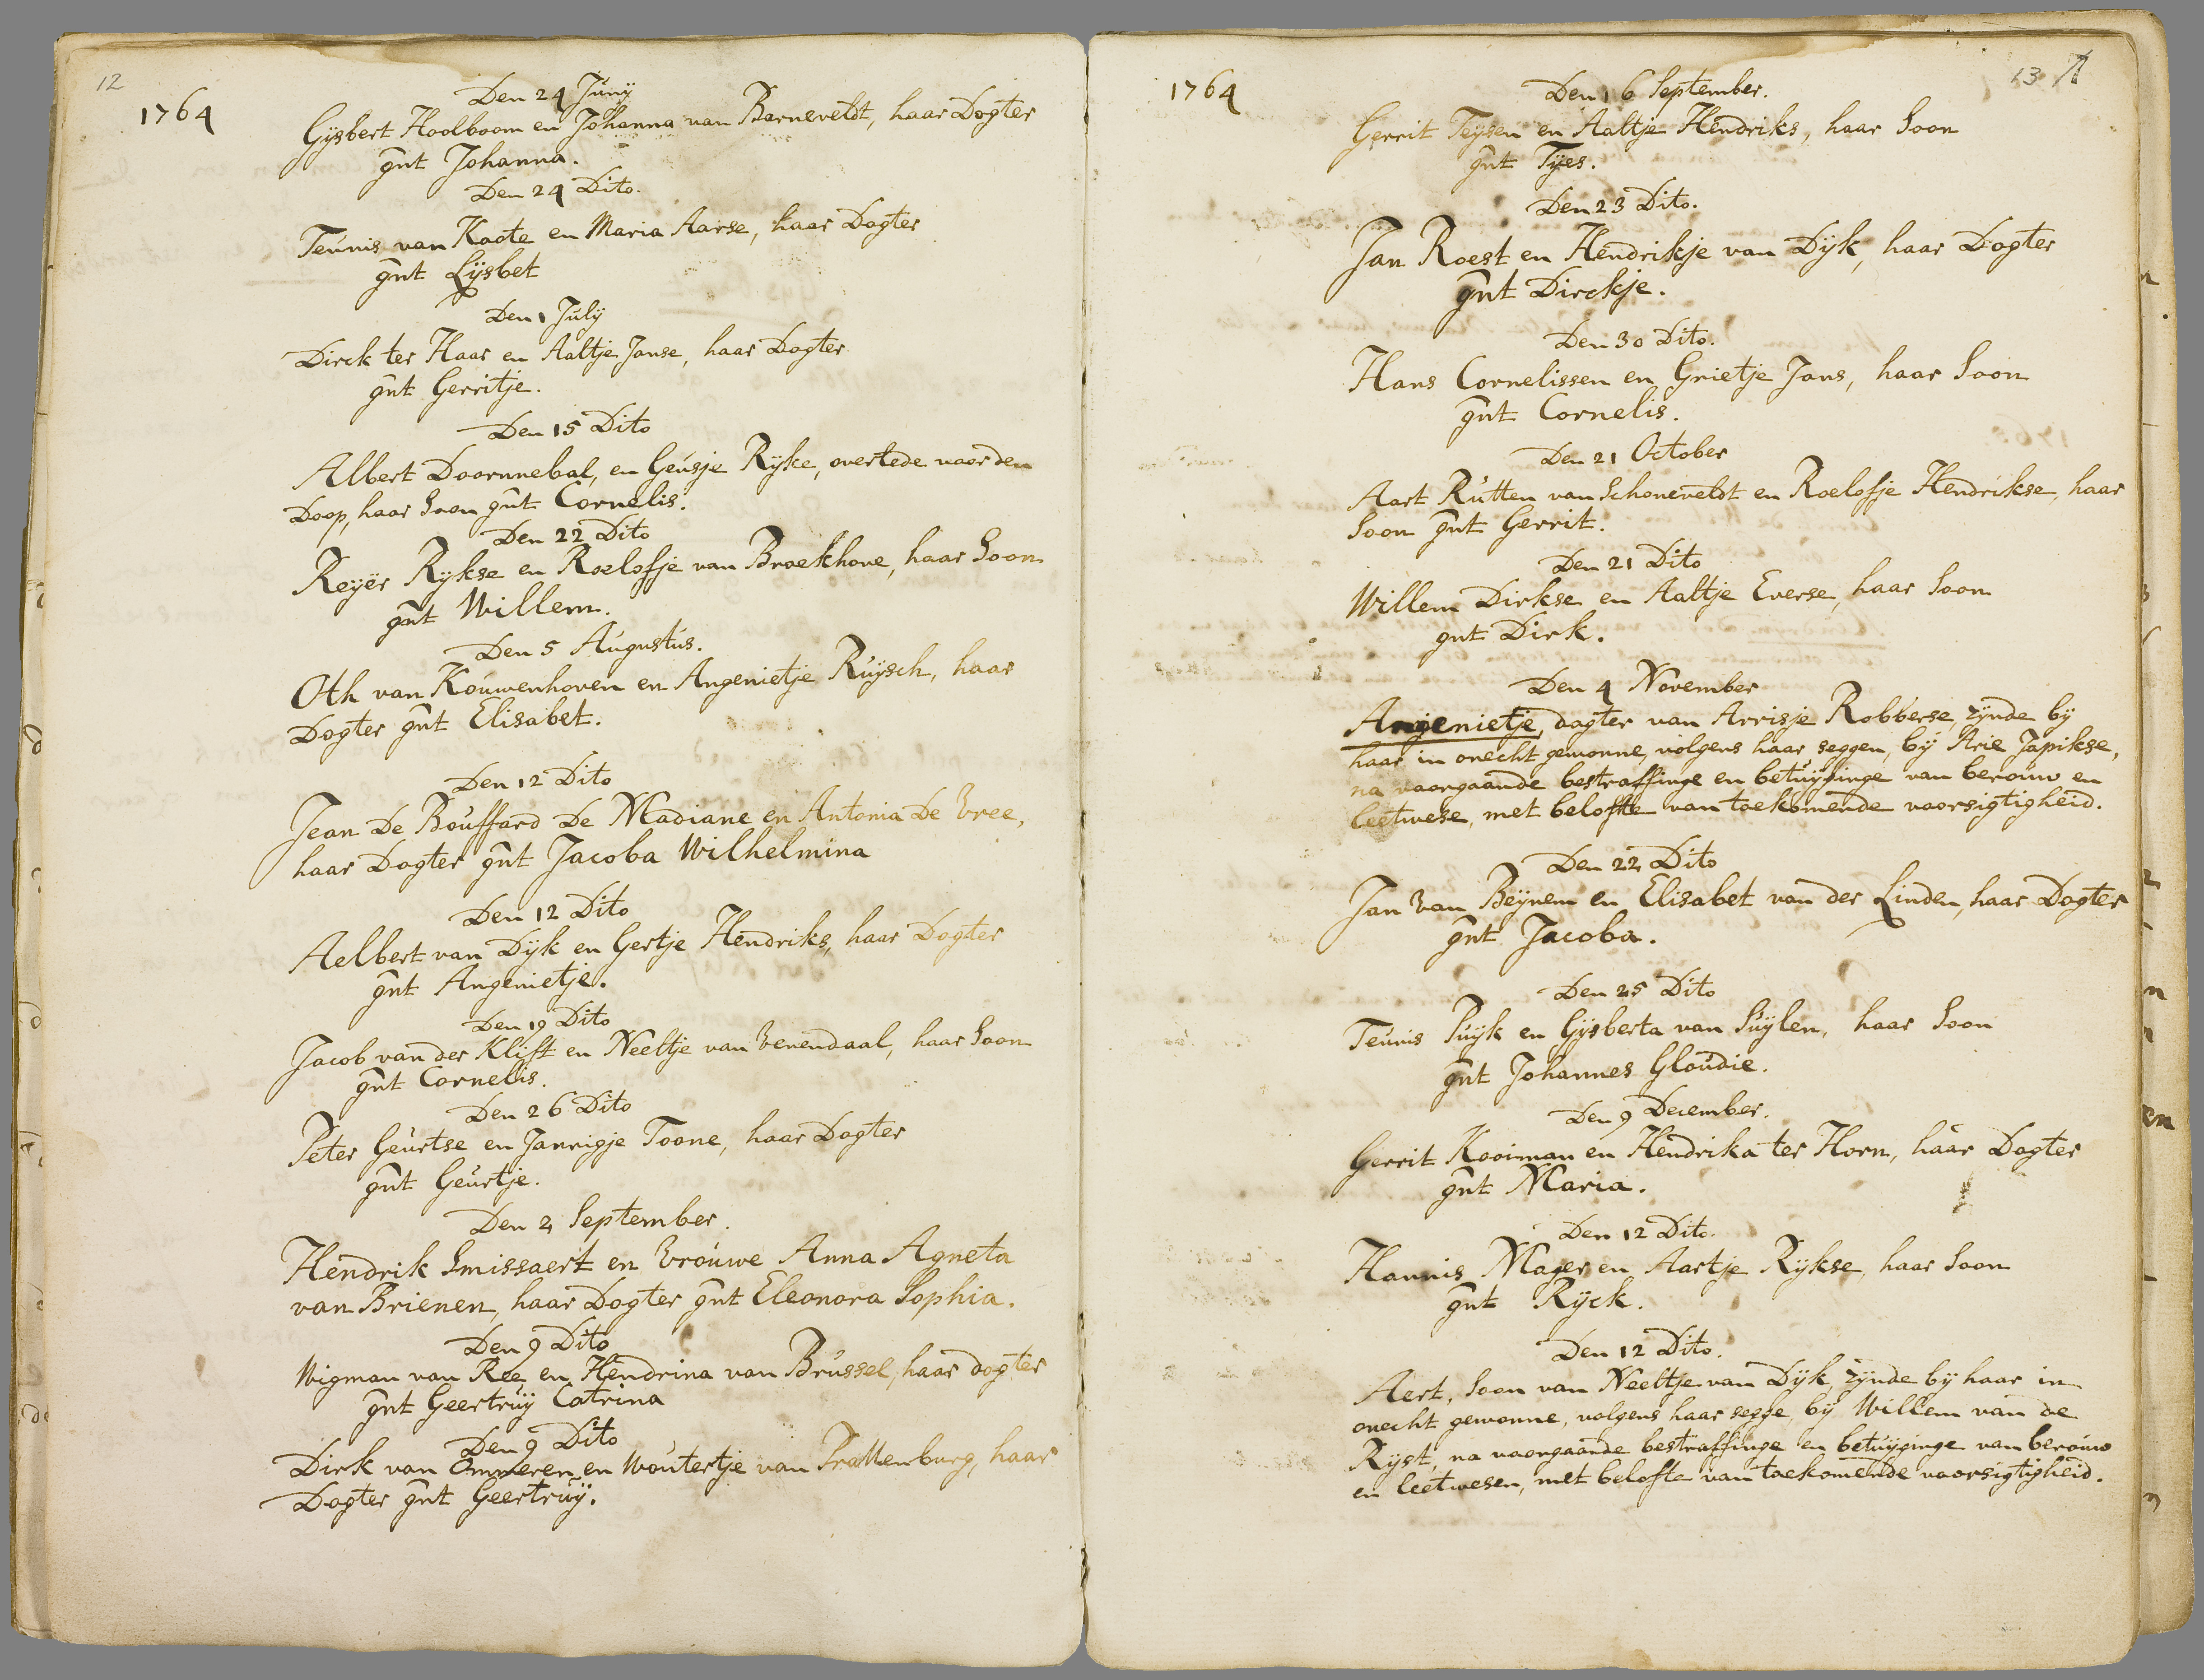 12
1764
Den 24 Juny
Gysbert Hoolboom en Johanna van Barneveldt, haar Dogter
gnt Johanna.
Den 24 Dito.
Teunis van Kaote en Maria Aarse, haar Dogter
gnt Lysbet
Den 1 July
Dirck ter Haar en Aaltje Janse, haar Dogter
gnt Gerritje.
Den 15 Dito
Albert Doornnebal, en Geusje Ryke, overlede voor den
Doop, haar Soon gnt Cornelis.
Den 22 Dito
Reyër Rykse en Roelofje van Broekhove, haar Soon
gnt Willem.
Den 5 Augustus.
Oth van Kouwenhoven en Angenietje Ruysch, haar
Dogter gnt Elisabet.
Den 12 Dito
Jean De Bouffard De Madiane en Antonia De Vree,
haar Dogter gnt Jacoba Wilhelmina
Den 12 Dito
Aelbert van Dyk en Gertje Hendriks, haar Dogter
gnt Angenietje.
Den 19 Dito
Jacob van der Klift en Neeltje van Venendaal, haar Soon
gnt Cornelis.
Den 26 Dito
Peter Geurtse en Jannigje Toone, haar Dogter
gnt Geurtje.
Den 2 September.
Hendrik Smissaert en Vrouwe Anna Agneta
van Brienen, haar Dogter gnt Eleonora Sophia.
Den 9 Dito
Wigman van Ree en Hendrina van Brussel, haar dogter
gnt Geertruy Catrina
Den 9 Dito
Dirk van Ommeren en Woutertje van Prattenburg, haar
Dogter gnt Geertruy.
13
1764
Den 16 September.
Gerrit Teysen en Aaltje Hendriks, haar Soon
gnt Tyes.
Den 23 Dito.
Jan Roest en Hendrikje van Dyk, haar Dogter
gnt Dirckje.
Den 30 Dito.
Hans Cornelissen en Grietje Jans, haar Soon
gnt Cornelis.
Den 21 October
Aart Rutten van Schoneveldt en Roelofje Hendrikse, haar
Soon gnt Gerrit.
Den 21 Dito
Willem Dirkse en Aaltje Everse, haar Soon
gnt Dirk.
Den 4 November
Angenietje, dogter van Arrisje Robberse, zynde by
haar in onecht gewonne, volgens haar seggen, by Arie Japikse,
na voorgaande bestraffinge en betuyginge van berouw en
leetwese, met belofte van toekomende voorsigtigheid.
Den 22 Dito
Jan Van Beynem en Elisabet van der Linden, haar Dogter
gnt Jacoba.
Den 25 Dito
Teunis Puyk en Gysberta van Suylen, haar Soon
gnt Johannes Gloudie.
Den 9 December.
Gerrit Kooiman en Hendrika ter Horn, haar Dogter
gnt Maria.
Den 12 Dito.
Hannis Mager en Aartje Rykse, haar Soon
gnt Ryck.
Den 12 Dito.
Aert, Soon van Neeltje van Dyk zynde by haar in
onecht gewonne, volgens haar segge, by Willem van de
Ryst, na voorgaande bestraffinge en betuyginge van berouw
en leetwesen, met belofte van toekomende voorsigtigheid.